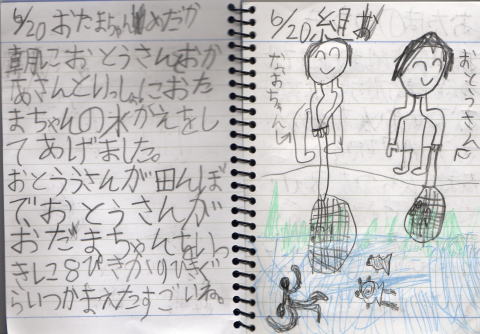 6/20 おたまちゃんめだか
朝におとうさんとおか
あさんといっしょにおた
まちゃんの水がえをし
てあげました。
おとううさんが田んぼ
でおとうさんが
おだまちゃんをいっ
きに8ぴきか9ひきぐ
らいつかまえたすごいね。
6/20 絵
なおちゃん
おとうさん